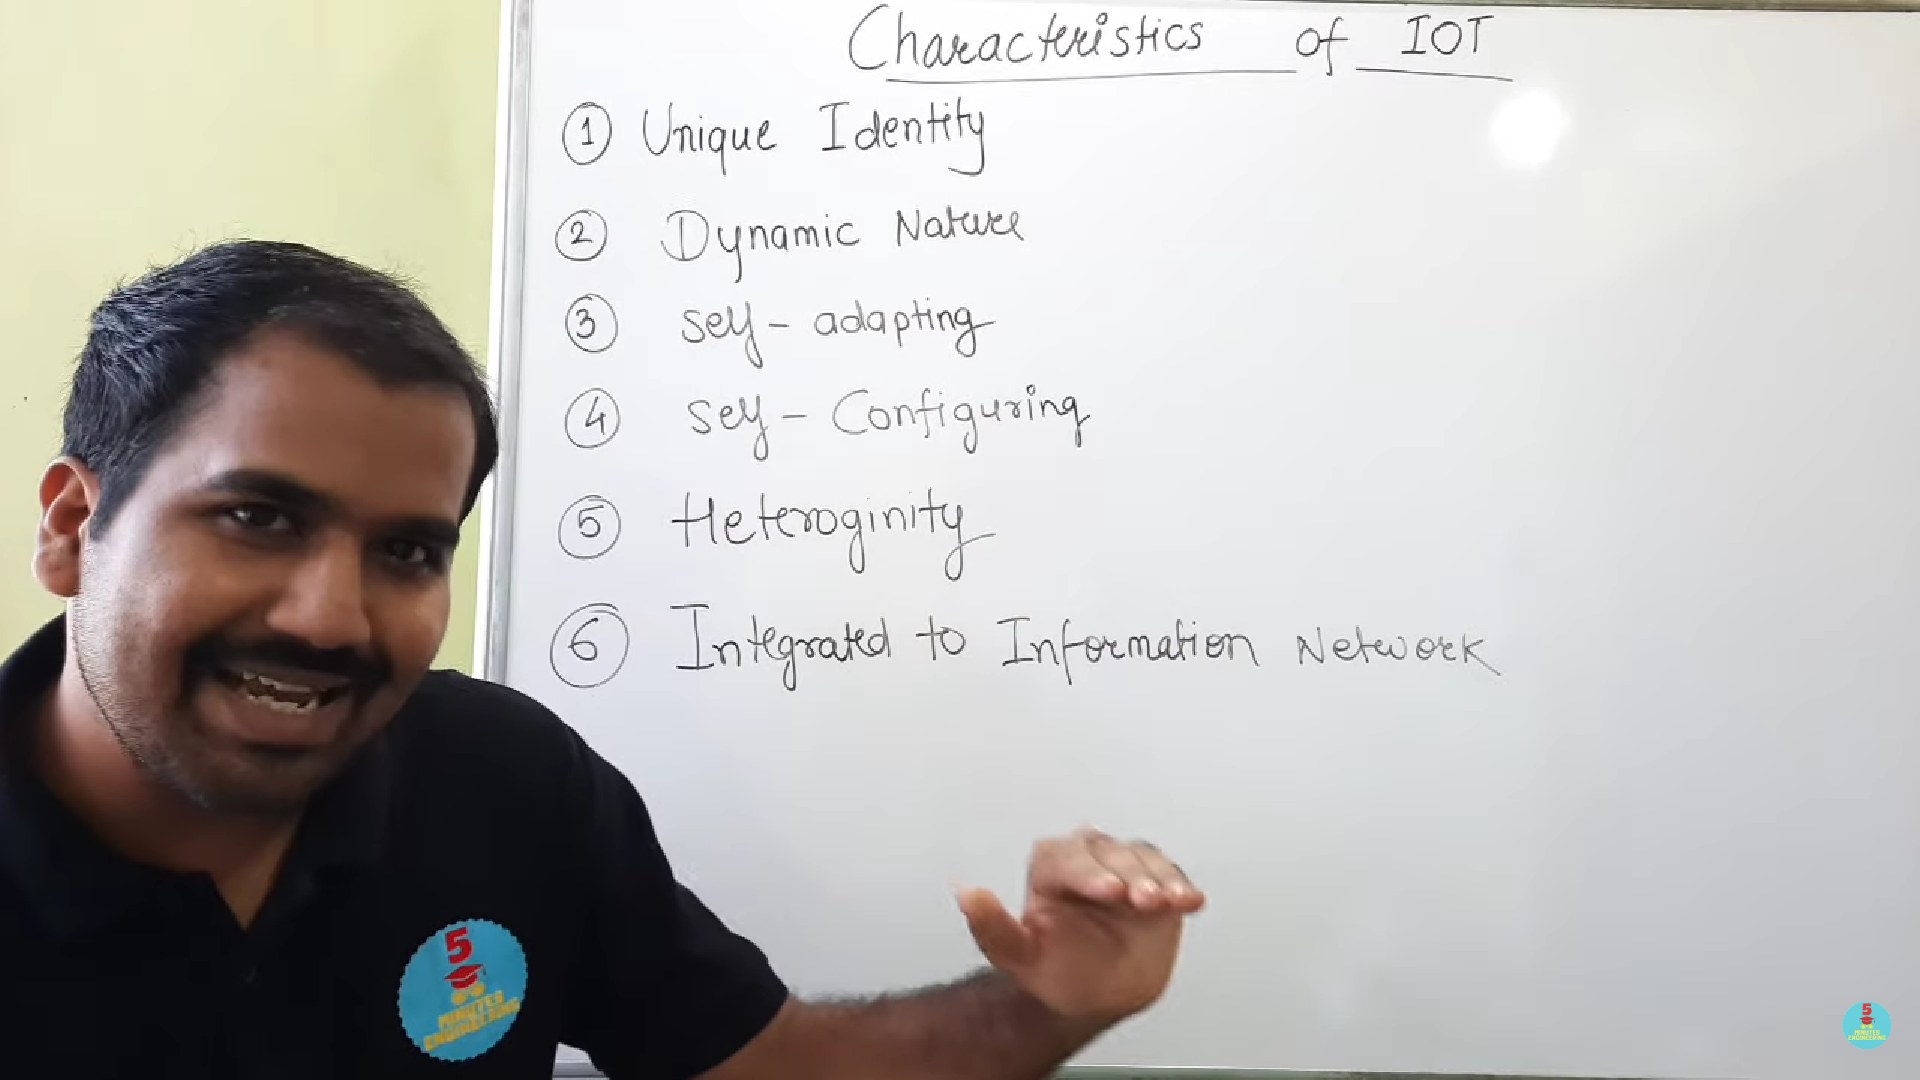 Characteristics of IOT
1 Unique Identity
2 Dynamic Nature
3 self - adapting
4 self - Configuring
5 Heteroginity
6 Integrated to Information Network
5
MINUTES
ENGINEERING
5
MINUTES
ENGINEERING